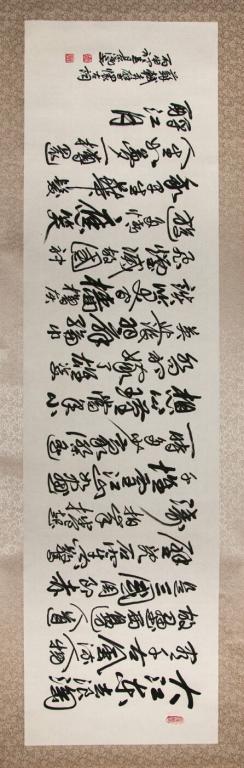 大江東去浪淘
盡千古風流人物
故壘西邊人道
是三國周郎赤
壁亂石穿空驚
濤拍岸捲起
千堆雪江山如畫
一時多少豪傑遙
想公瑾當年小
喬初嫁了雄姿
英發羽扇綸巾
談笑間檣櫓
灰飛煙滅故國神
遊多情應笑
我早生華髮
人生如夢一樽還
酹江月
蘇軾赤壁懷古詞